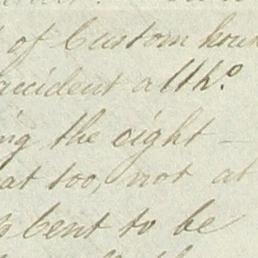 of Custom hous
accident altho
ing the eight -
at too, not at
bent to be